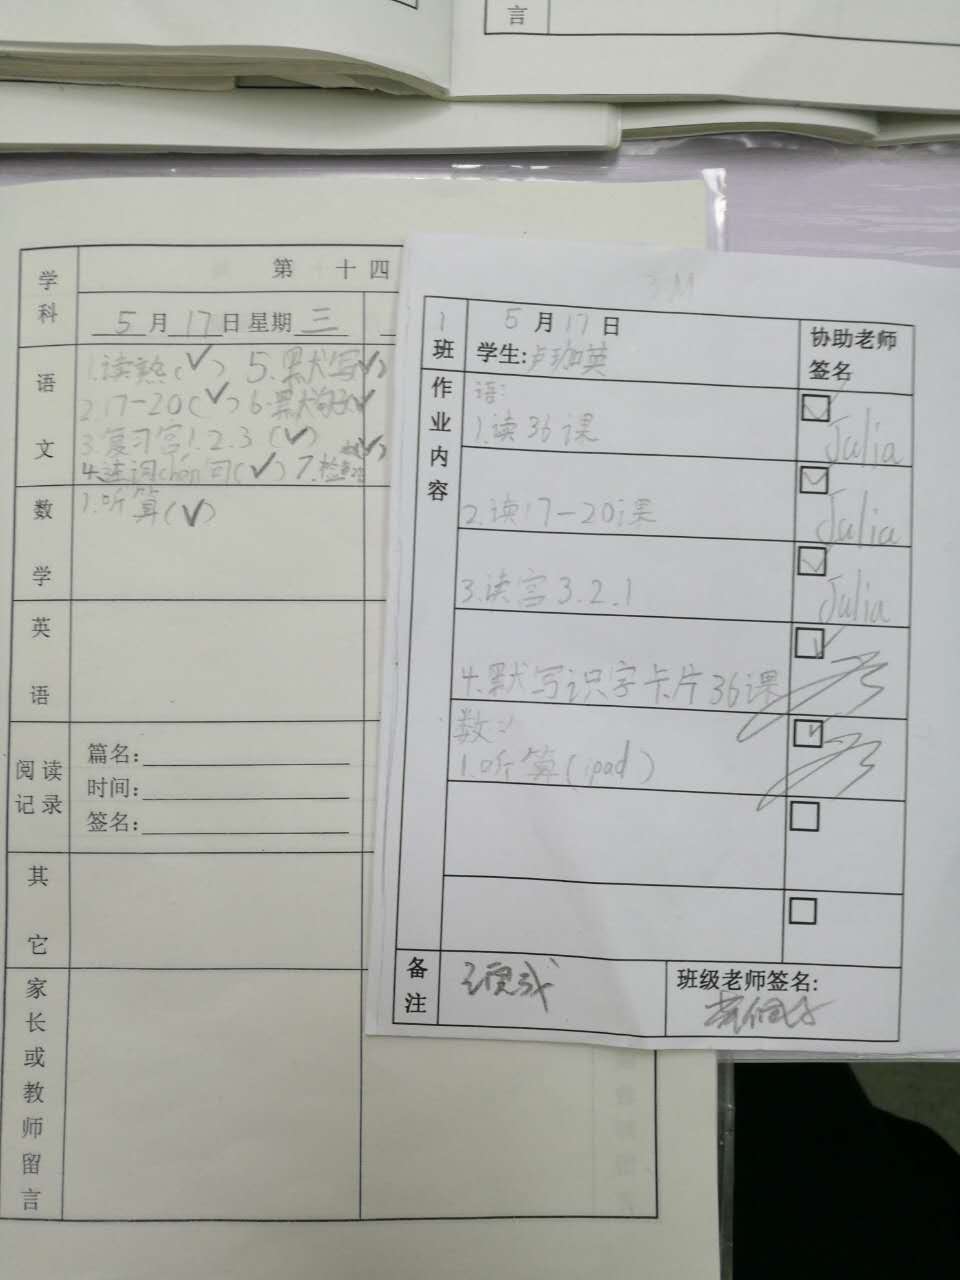 言
学科
第 十四
5月17日 星期三
语文
1.读熟(✓) 5.默写(✓)
2.17-20(✓) 6.默句子(✓)
3.复习宫1.2.3(✓)
4.连词chén句(✓) 7.检
数学
1.听算(✓)
英语
阅读记录
篇名:
时间:
签名:
其它
家长或教师留言
1班
5月17日
学生:卢珈英
协助老师签名
作业内容
语:
1.读36课
Julia
2.读17-20课
Julia
3.读宫3.2.1
Julia
4.默写识字卡片36课
数:
1.听算(ipad)
备注
班级老师签名: